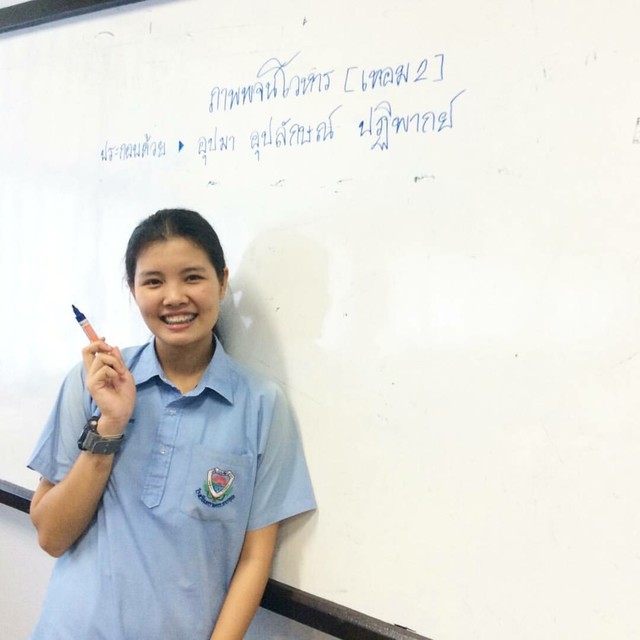 ภาพพจน์โวหาร [เทอม2]
ประกอบด้วย ▸ อุปมา อุปลักษณ์ ปฏิพากย์